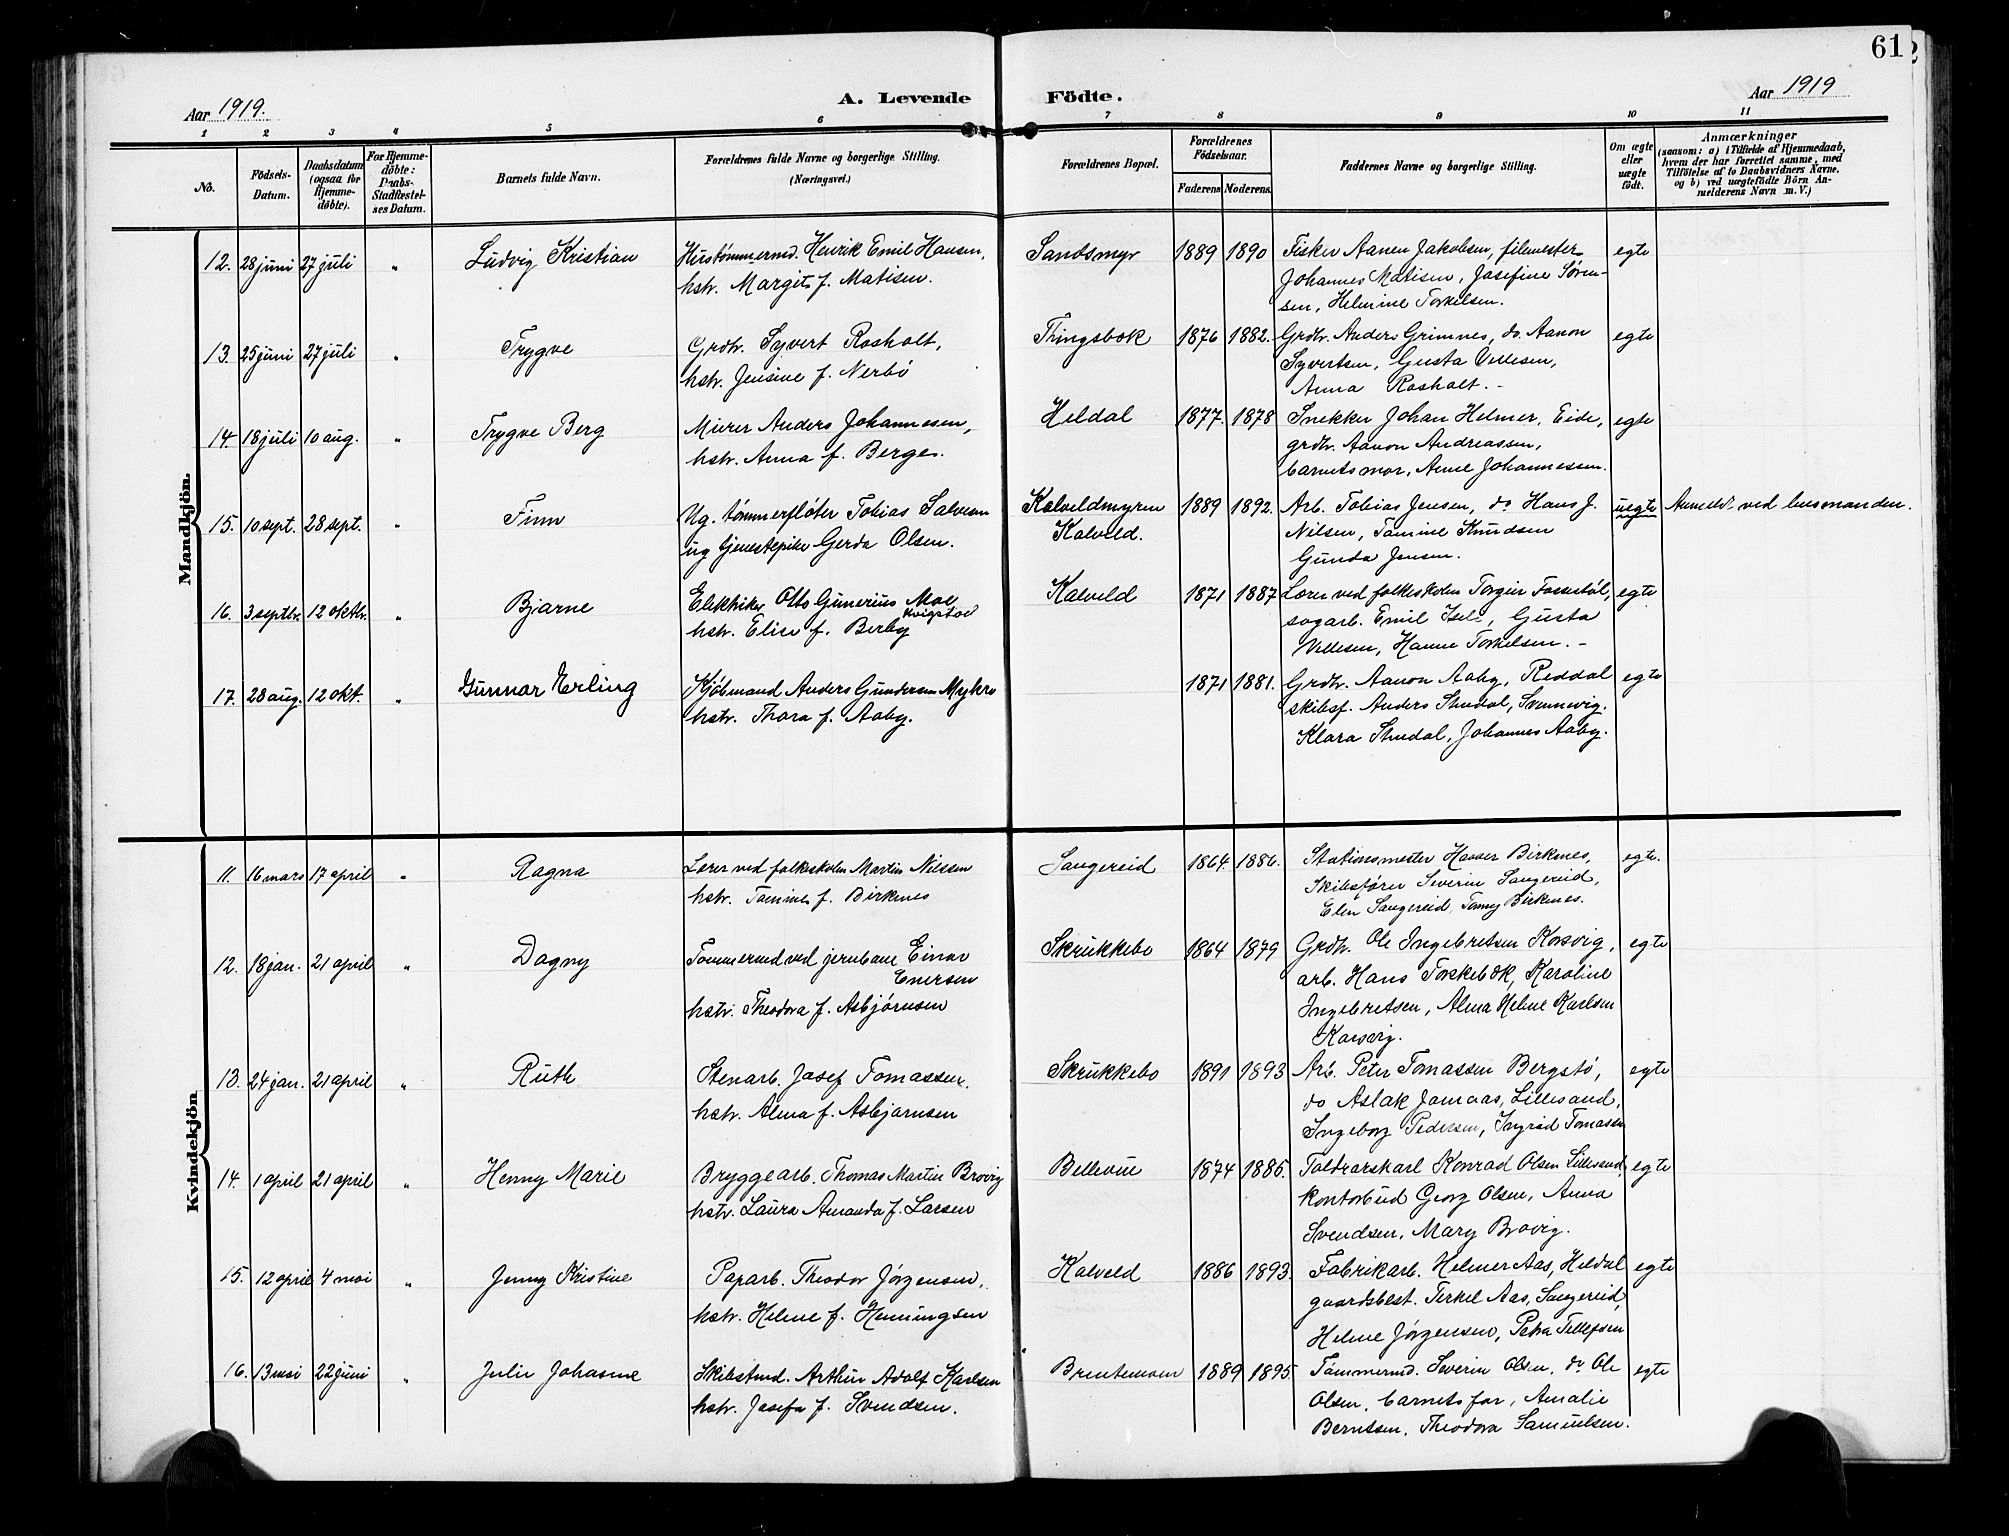 61
Aar 1919.
A. Levende Födte.
Aar 1919
1 2 3 4 5 6 7 8 9 10 11
No.
Födsels-Datum.
Daabsdatum (ogsaa for Hjemme-døbte).
For Hjemme-døbte: Daabs-Stadfæstel-ses Datum.
Barnets fulde Navn.
Forældrenes fulde Navne og borgerlige Stilling.
(Næringsvei.)
Forældrenes Bopæl.
Forældrenes Födselsaar.
Faderens. Moderens.
Faddernes Navne og borgerlige Stilling.
Om ægte eller uægte födt.
Anmærkninger
(saasom: a) i Tilfælde af Hjemmedaab,
hvem der har forrettet samme, med
Tilföielse af to Daabsvidners Navne,
og b) ved uægtefödte Börn An-
melderens Navn m. V.)
Mandkjön.
12. 28 juni 27 juli " Ludvig Kristian Hustømmermd. Henrik Emil Hansen, Sandsmyr 1889 1890 Fisker Aanen Jakobsen, filemester egte
hstr. Margit f. Matisen. Johannes Matisen, Josefine Søren-
sen, Helmine Torkelsen.
13. 25 juni 27 juli " Trygve Grdbr. Syvert Rosholt, Thingsbok 1876 1882. Grdbr. Anders Grimnes, do. Aanon egte
hstr. Jensine f. Nerbö Syvertsen, Gusta Vellesen,
Anna Rosholt. -
14. 18 juli 10 aug. " Trygve Berg Murer Anders Johannesen, Heldal 1877. 1878 Snekker Johan Helmer, Eide, egte
hstr. Anna f. Berge. grdbr. Aanon Andreassen,
barnets mor, Anne Johannesen.
15. 10 sept. 28 sept. " Finn Ug. tømmerfløter Tobias Salvesen Kalveldmyren 1889 1892. Arb. Tobias Jensen, do Hans J. uegte Anmeldt ved lensmanden.
ug tjenestepike Gerda Olsen. Kalveld. Nilsen, Tomine Knudsen
Gunda Jensen.
16. 3 septbr. 12 oktbr. " Bjarne Elektriker Otto Gunerius Moe Kalveld 1871 1887 Lærer ved folkeskolen Torgeir Fossestøl, egte
Kvigstad
hstr. Elise f. Berby sagarb. Emil, Gusta
Vellesen, Hanne Torkelsen. -
17. 28 aug. 12 okt. " Gunnar Erling Kjöbmand Anders Gundersen Mykre 1871 1881. Grdbr. Aanon Aaby, Reddal egte
hstr. Thora f. Aaby. skibsf. Anders Studal, Svennevig.
Klara Studal, Johannes Aaby.
Kvindekjön
11. 16 mars 17 april " Ragna Lærer ved folkeskolen Martin Nilssen Saugereid 1864. 1886. Stationsmester Hanser Birknes, egte.
hstr. Tomine f. Birknes Skibsfører Severin Saugereid,
Elen Saugereid, Tomy Birknes.
12. 18 jan. 21 april " Dagny Tømmermd ved jernbane Einar Skrukkebo 1864 1879 Grdbr. Ole Ingebretsen Korsvig, egte
Enersen arb. Hans Torskebok, Karoline
hstr. Theodora f. Asbjørnsen Ingebretsen, Alma Helene Karlsen
Korsvig.
13. 24 jan. 21 april " Ruth Stenarb. Josef Tomassen. Skrukkebo 1891 1893 Arb. Peter Tomassen Bergstø, egte
hstr. Alma f. Asbjørnsen do Aslak Jomaas, Lillesand,
Ingeborg Pedersen, Ingrid Tomassen
14. 1 april 21 april " Henny Marie Bryggearb. Thomas Martin Brovig Bellevue 1874 1885. Toldrorskarl Konrad Olsen Lillesand, egte
hstr. Laura Amanda f. Larsen kontorbud Georg Olsen, Anna
Svendsen, Mary Brovig.
15. 12 april 4 mai " Jenny Kristine Paparb. Theodor Jørgensen, Kalveld 1886 1893. Fabrikarb. Helmer Aas, Heldal egte
hstr. Helene f. Henningsen gaardsbest. Terkel Aas, Saugereid,
Helene Jørgensen, Petra Tellefsen
16. 13 mai 22 juni " Julie Johanne Skibstmd. Arthur Adolf Karlsen Brentemoen 1889 1895. Tømmermd. Severin Olsen, do Ole egte
hstr. Josefa f. Svendsen. Olsen, barnets far, Amalie
Berntsen. Theodora Samuelsen.